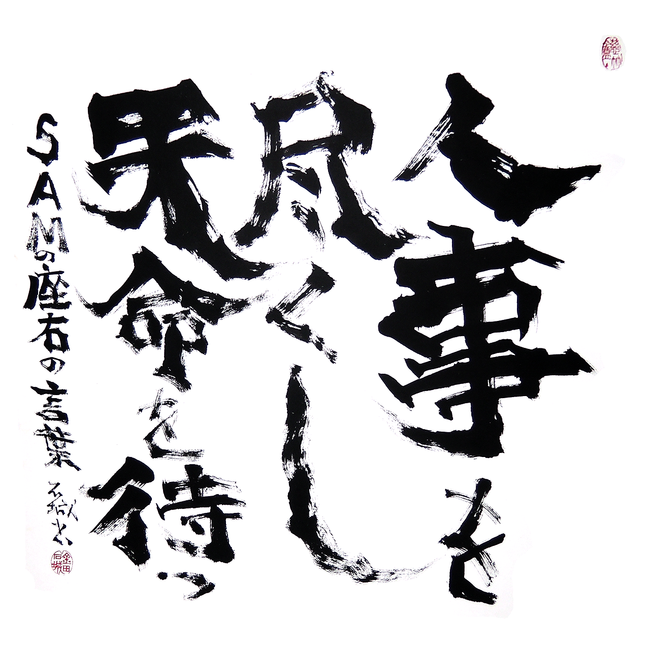 人事を
尽くし
天命を待つ
SAMの座右の言葉